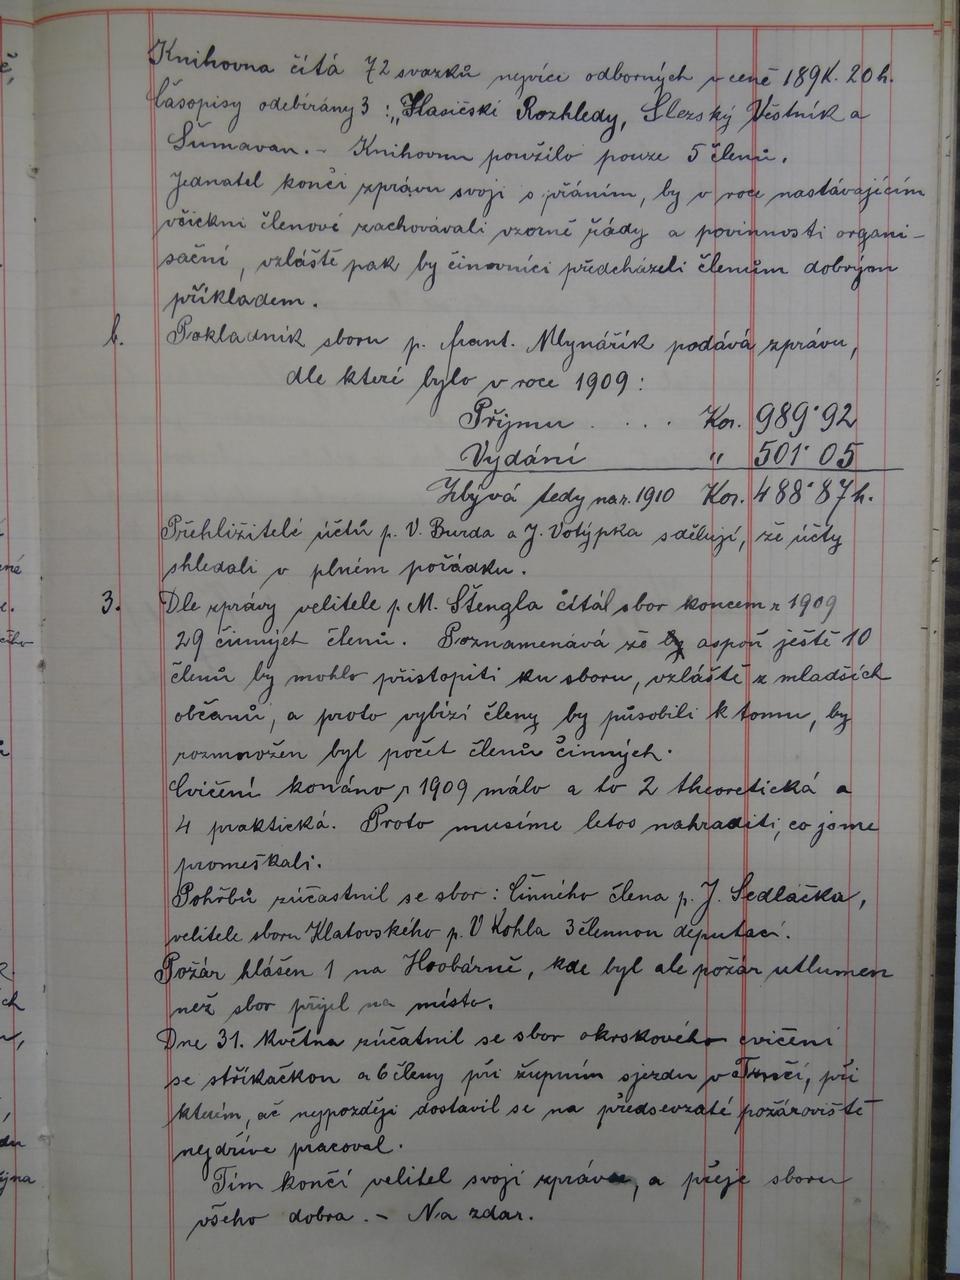 Knihovna čítá 72 svazků nejvíce odborných v ceně 189K. 20h.
Časopisy odebírány 3 : „Hasičské Rozhledy, Slezský Věstník a
Šumavan. – Knihovnu použilo pouze 5 členů.
Jednatel končí zprávu svoji s přáním, by v roce nastávajícím
všickni členové zachovávali vzorně řády a povinnosti organi-
sační, vzláště pak by činovníci předcházeli členům dobrým
příkladem.
b. Pokladník sboru p. Frant. Mlynářík podává zprávu,
dle které bylo v roce 1909 :
Příjmu . . . . Kor. 989·92
Vydání " 501·05
Zbývá tedy na r. 1910 Kor. 488·87h.
Přehlížitelé účtů p. V. Burda a J. Votýpka sdělují, že účty
shledali v plném pořádku.
3. Dle zprávy velitele p. M. Štengla čítal sbor koncem r 1909
29 činných členů. Poznamenává že aspoň ještě 10
členů by mohlo přistopiti ku sboru, vzláště z mladších
občanů, a proto vybízí členy by působili k tomu, by
rozmnožen byl počet členů činných.
Cvičení konáno r 1909 málo a to 2 theoretická a
4 praktická. Proto musíme letos nahraditi, co jsme
promeškali.
Pohřbů zúčastnil se sbor : Činného člena p. J. Sedláčka,
velitele sboru Klatovského p. V Kohla 3člennou deputací.
Požár hlášen 1 na , kde byl ale požár utlumen
než sbor přijel na místo.
Dne 31. Května zúčatnil se sbor okrskového cvičení
se stříkačkou a 6 členy při župním sjezdu v , při
kterém, ač nejpozději dostavil se na předsevzaté požároviště
nejdříve pracoval.
Tím končí velitel svoji zprávu, a přeje sboru
všeho dobra. – Na zdar.